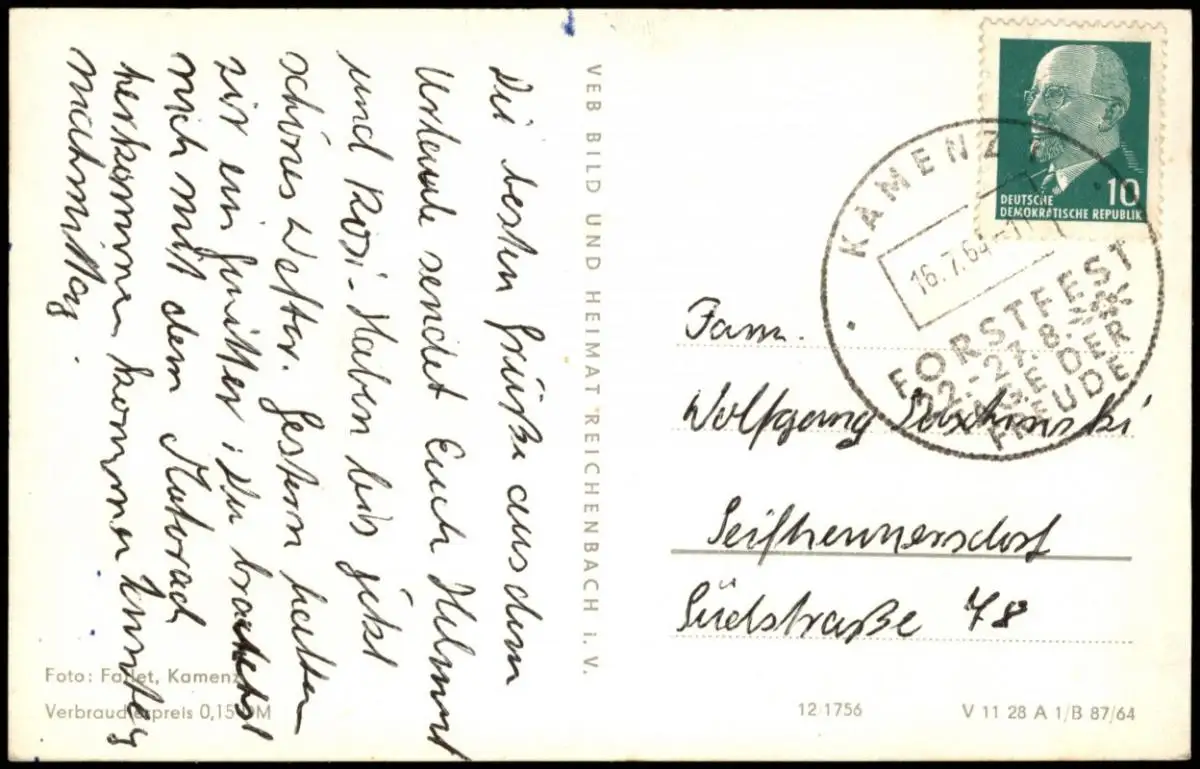 Die besten Grüße aus dem
Urlaub sendet Euch Helmut
und Rosi - Haben bis jetzt
schönes Wetter. Gestern hatten
wir ein Gewitter. Du brauchst
mich mit dem Motorad
herkommen kommen
nachmittag.
VEB BILD UND HEIMAT REICHENBACH i. V.
DEUTSCHE
DEMOKRATISCHE REPUBLIK
10
KAMENZ
16.7.64
FORSTFEST
22.-27.8.
TAGE DER
FREUDE
Fam.
Wolfgang
Seifhennersdorf
Südstraße 78
Foto: Kamenz
Verbraucherpreis 0,15 DM
12/1756
V 11 28 A 1/B 87/64